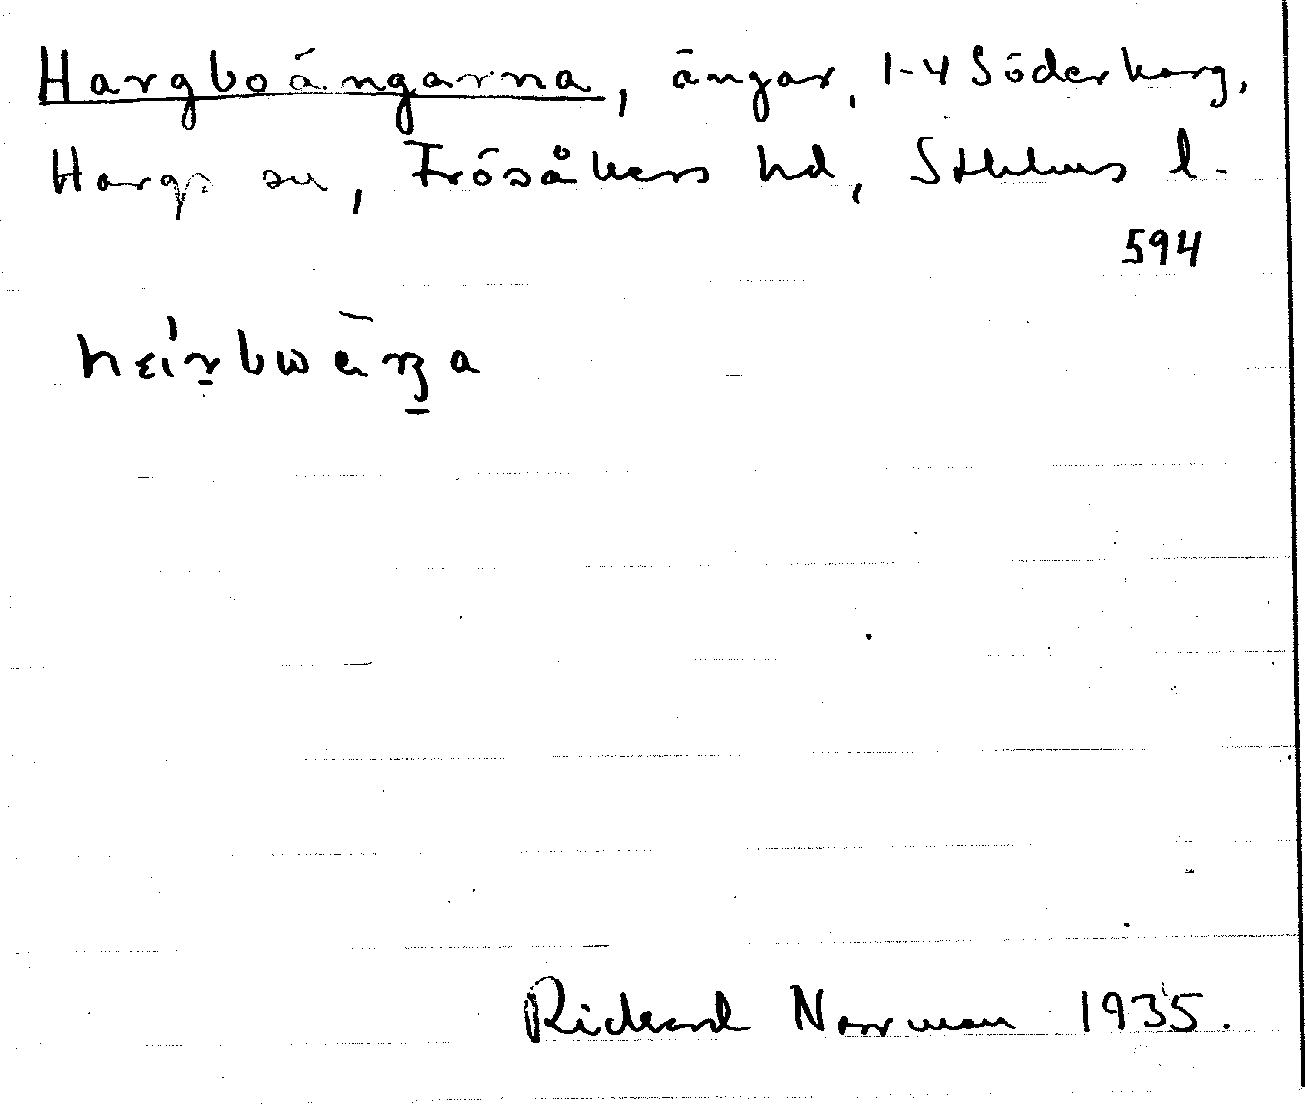 Hargboängarna, ängar, 1-4 Söderharg,
Hargs sn, Frösåkers hd, Sthlms l.
594
Richard Norrman 1935.